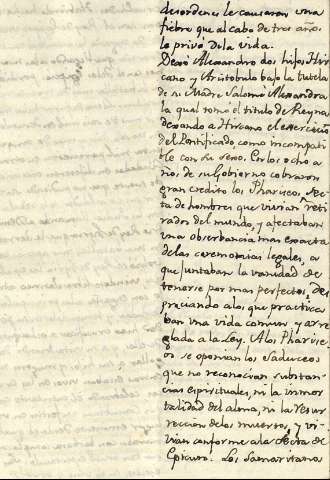 desordenes le causaron una
fiebre que al cabo de tres año.
lo privó dela vida.
Dexó Alexandro dos hijos Hir
cano y Aristobulo bajo la tutela
de su Madre Salomé Alexandra
la qual tomó el titulo de Reyna
dexando a Hircano el exercicio
del Pontificado, como incompati
ble con su sexo. En los ocho a
nos de su Gobierno cobraron
gran credito los Phariseos, Sec
ta de hombres que vivian reti
rados del mundo, y afectaban
una observancia mas exacta
delas ceremonias legales, a
que juntaban la vanidad de
tenerse por mas perfectos, Des
preciando alos que practica
ban una vida comun y arre
glada a la Ley. Alos Pharise
os se oponian los Saduceos
que no reconocian substan
cias espirituales, ni la inmor
talidad del alma, ni la resur
reccion delos muertos, y vi
vian conforme ala Secta de
Epicuro. Los Samaritanos